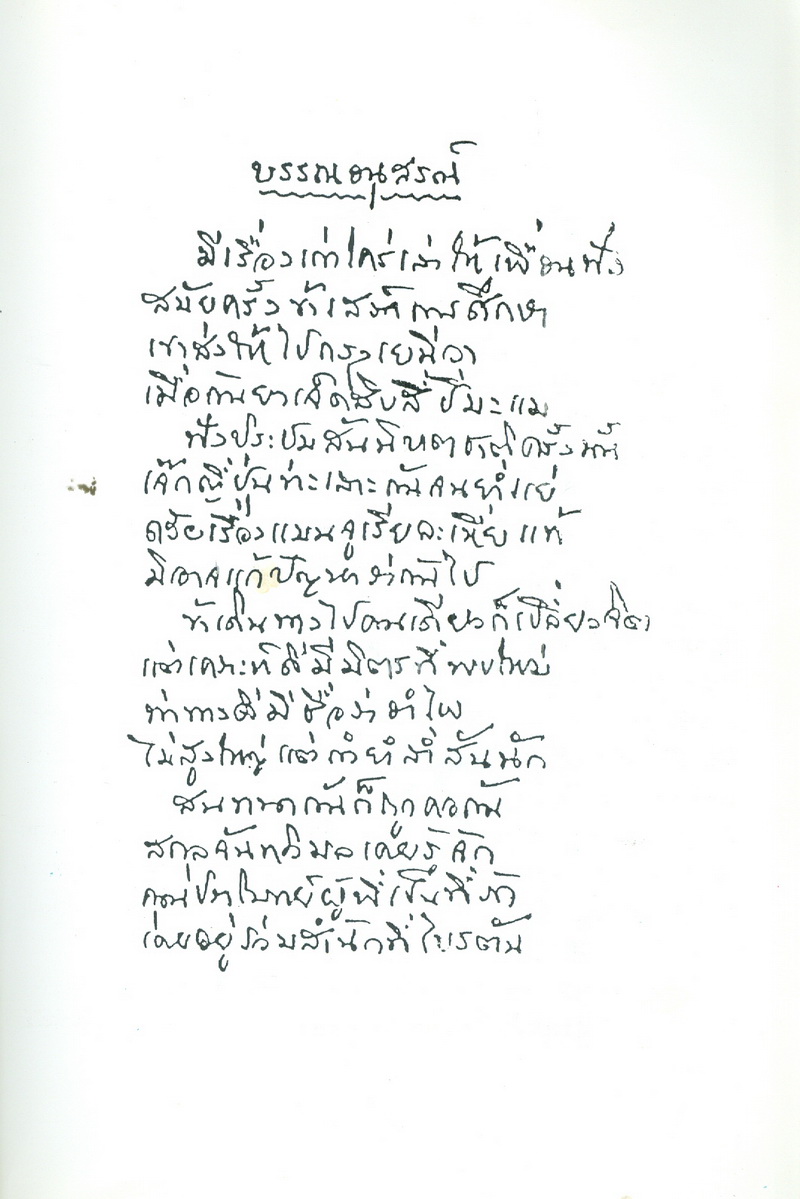 บรรณอนุสรณ์
มีเรื่องเก่าใคร่เล่าให้เพื่อนฟัง
สมัยครั้งข้าเสร็จการศึกษา
เขาส่งให้ไปกรุงเยนีวา
เมื่อกันยาเจ็ดสิบสี่ปีมะแม
ฟังประชุมสันนิบาตชาติครั้งนั้น
เจ๊กญี่ปุ่นทะเลาะกันจนย่ำแย่
ด้วยเรื่องแมนจูเรียละเหี่ยแท้
มิอาจแก้ปัญหาว่ากันไป
ข้าเดินทางไปคนเดียวก็เปลี่ยวจิต
แต่เคราะห์ดีมีมิตรที่พบใหม่
ท่าทางดีมีชื่อว่าอำไพ
ไม่สูงใหญ่แต่กำยำล่ำสันนัก
สนทนากันก็ถูกคอกัน
สกุลจันทวิมลเคยรู้จัก
คุณปราโมทย์ผู้พี่เป็นที่รัก
เคยอยู่ร่วมสำนักที่ไบรตัน